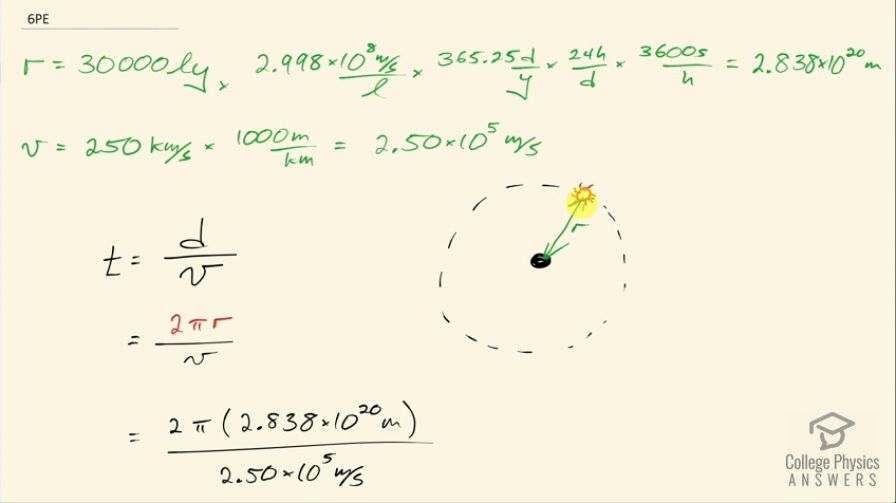 6PE
r = 30000 ly × 2.998×10⁸ m/s / l × 365.25d / y × 24h / d × 3600s / h = 2.838×10²⁰ m
v = 250 km/s × 1000m / km = 2.50×10⁵ m/s
r
t = d / v
= 2πr / v
= 2π(2.838×10²⁰ m) / 2.50×10⁵ m/s
College Physics
ANSWERS